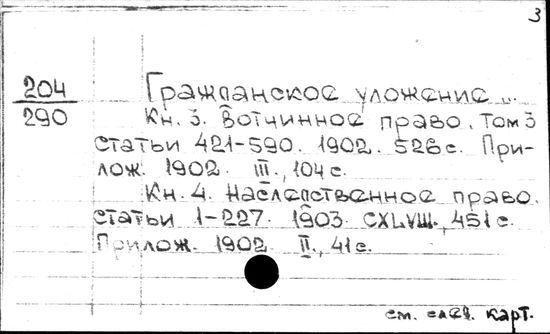 3
204
290
Гражданское уложение...
Кн. 3. Вотчинное право. Том 3
статьи 421-590. 1902. 526 с. При-
лож. 1902. III., 104 с.
Кн. 4. Наследственное право.
статьи 1-227. 1903. CXLVIII., 451 с.
Прилож. 1902. II., 41 с.
см. след. карт.